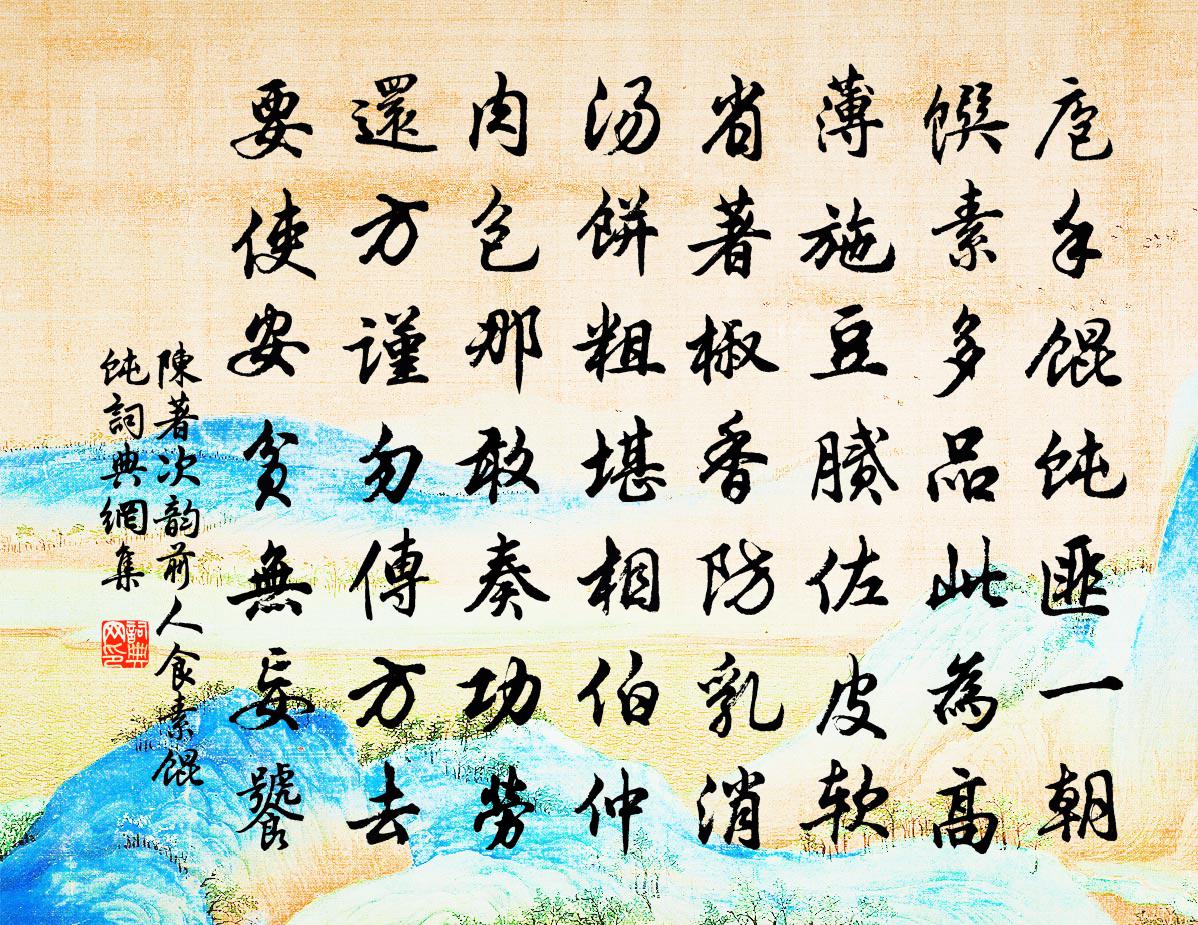 庖手餛飩匪一朝
饌素多品此為高
薄施豆膩佐皮軟
省著椒香防乳消
湯餅粗堪相伯仲
肉包那敢奏功勞
還方謹勿傳方去
要使安貧無妄饕
陳著次韵前人食素餛
飩詞典網集
詞典
网印